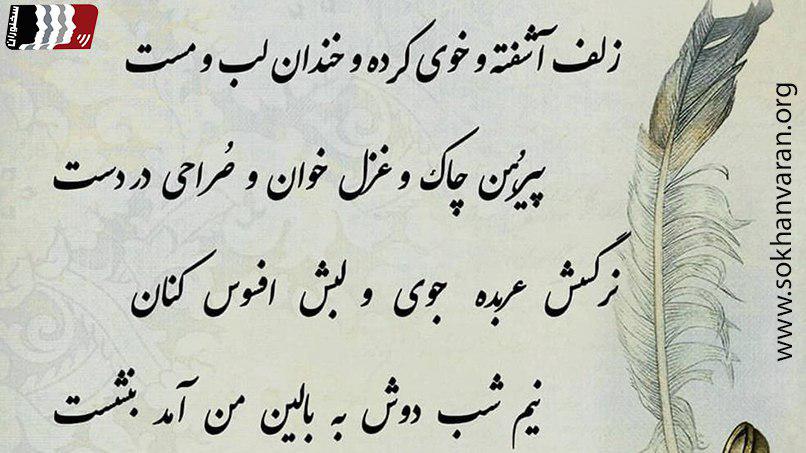 سخنوران
زلف آشفته و خوی کرده و خندان لب و مست
پیرهن چاک و غزل خوان و صُراحی در دست
نرگسش عربده جوی و لبش افسوس کنان
نیم شب دوش به بالین من آمد بنشست
www.sokhanvaran.org